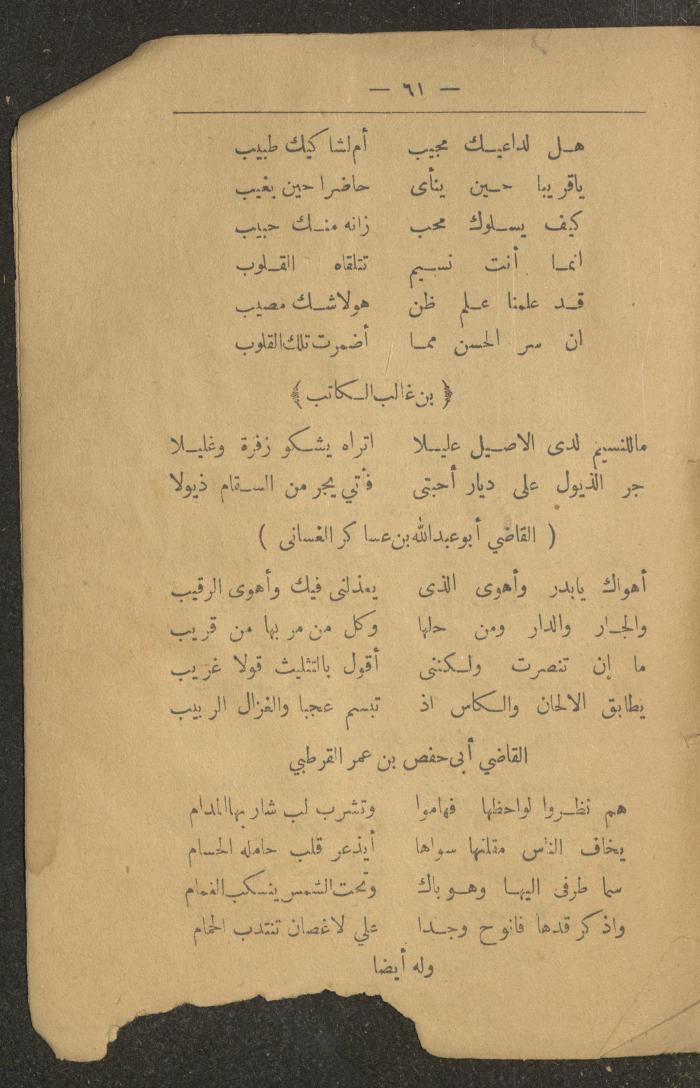 — ٦١ —
هل لداعيك مجيب أم لشاكيك طبيب
ياقريبا حين ينأى حاضرا حين يغيب
كيف يسلوك محب زانه منك حبيب
انما أنت نسيم تتلقاه القلوب
قد علمنا علم ظن هو لاشك مصيب
ان سر الحسن مما أضمرت تلك القلوب
﴿ بن غالب الكاتب ﴾
ماللنسيم لدى الاصيل عليلا اتراه يشكو زفرة وغليلا
جر الذيول على ديار أحبتى فأتي يجر من السقام ذيولا
( القاضي أبو عبدالله بن عساكر الغسانى )
أهواك يابدر وأهوى الذى يعذلنى فيك وأهوى الرقيب
والجار والدار ومن حلها وكل من مر بها من قريب
ما إن تنصرت ولكننى أقول بالتثليث قولا غريب
يطابق الالحان والكاس اذ تبسم عجبا والغزال الربيب
القاضي أبى حفص بن عمر القرطبي
هم نظروا لواحظها فهاموا وتشرب لب شاربها المدام
يخاف الناس مقلتها سواها أيذعر قلب حامله الحسام
سما طرفى اليها وهو باك وتحت الشمس ينسكب الغمام
واذكر قدها فانوح وجدا علي لاغصان تنتدب الحمام
وله أيضا